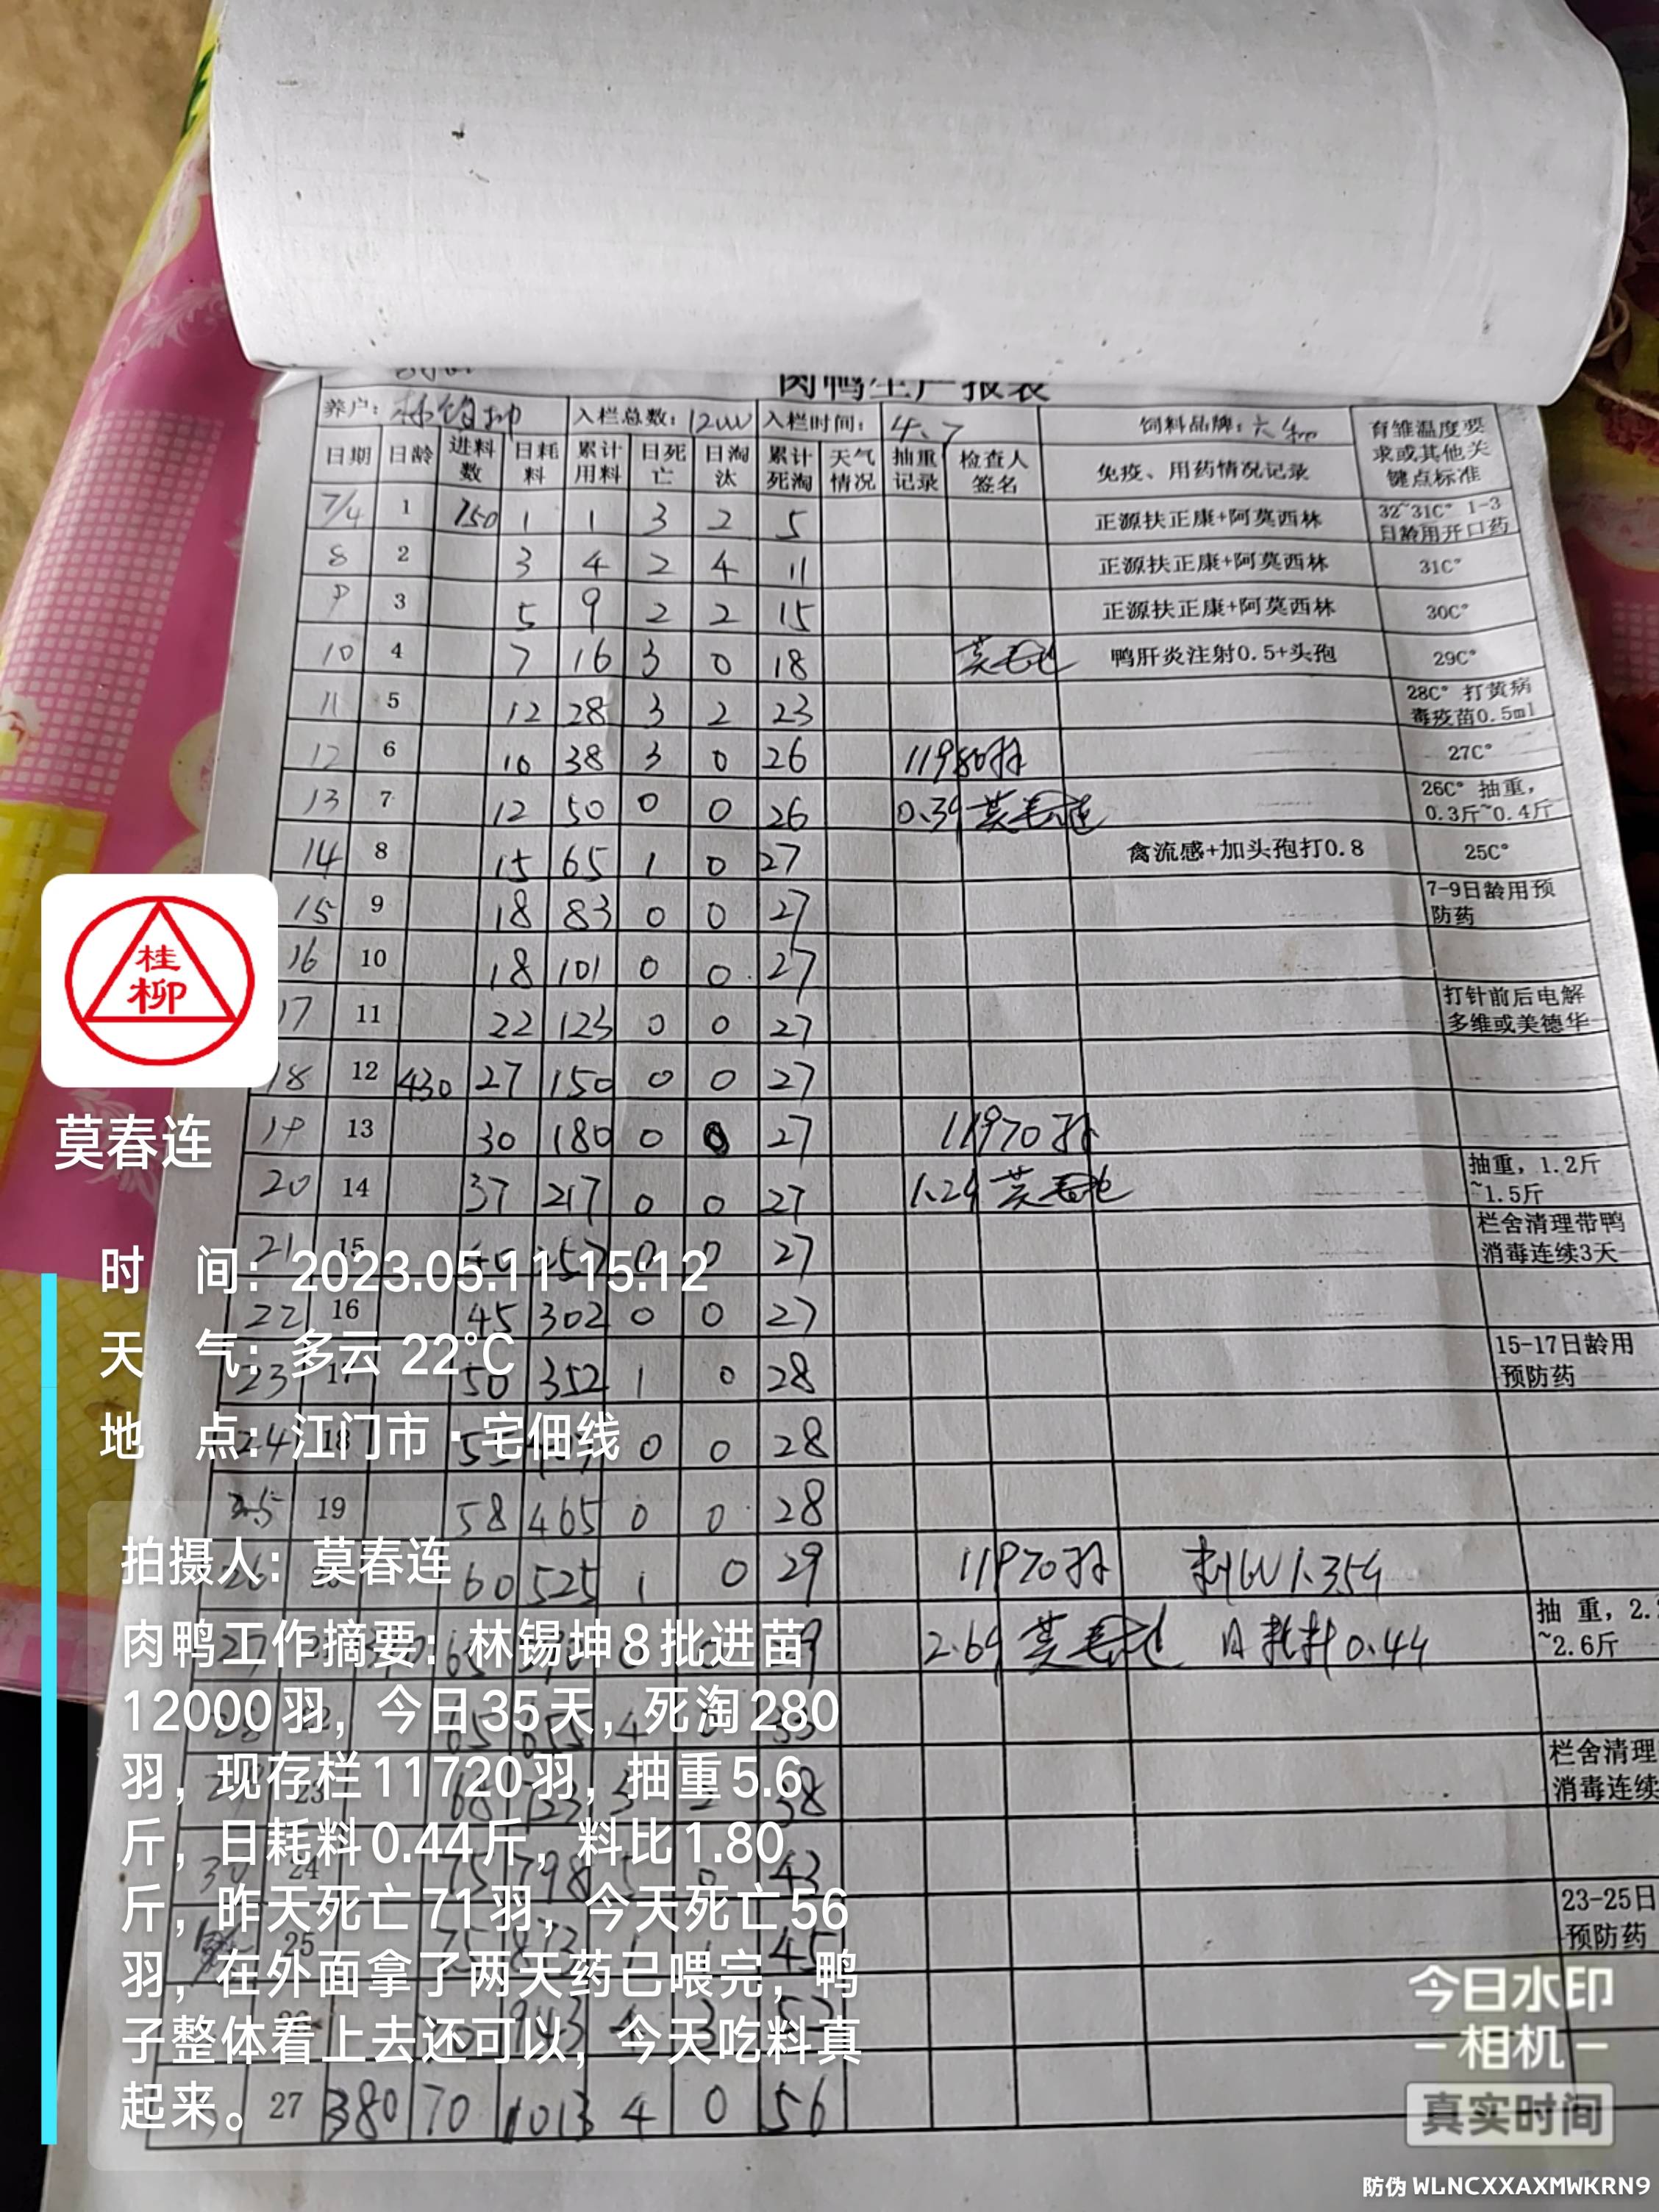 肉鸭生产报表
养户：林锡坤 入栏总数：12000 入栏时间：4.7 饲料品牌：六和 育雏温度要求或其他关键点标准
日期 日龄 进料数 日耗料 累计用料 日死亡 日淘汰 累计死淘 天气情况 抽重记录 检查人签名 免疫、用药情况记录
7/4 1 750 1 1 3 2 5 正源扶正康+阿莫西林 32~31C° 1-3日龄用开口药
8 2 3 4 2 4 11 正源扶正康+阿莫西林 31C°
9 3 5 9 2 2 15 正源扶正康+阿莫西林 30C°
10 4 7 16 3 0 18 莫春连 鸭肝炎注射0.5+头孢 29C°
11 5 12 28 3 2 23 28C° 打黄病毒疫苗0.5ml
12 6 10 38 3 0 26 11980羽 27C°
13 7 12 50 0 0 26 0.39 莫春连 26C° 抽重，0.3斤~0.4斤
14 8 15 65 1 0 27 禽流感+加头孢打0.8 25C°
15 9 18 83 0 0 27 7-9日龄用预防药
16 10 18 101 0 0 27
17 11 22 123 0 0 27 打针前后电解多维或美德华
18 12 430 27 150 0 0 27
19 13 30 180 0 0 27 11970羽
20 14 37 217 0 0 27 莫春连 抽重，1.2斤~1.5斤
21 15 40 257 0 0 27 栏舍清理带鸭消毒连续3天
22 16 45 302 0 0 27
23 17 50 352 1 0 28 15-17日龄用预防药
24 18 55 0 0 28
25 19 58 465 0 0 28
26 60 525 1 0 29 11970羽
27 65 29 莫春连 日耗料 抽 重，2.~2.6斤
22 65 655 4 33
23 68 723 3 2 38 栏舍清理消毒连续
24 75 798 5 0 43
25 75 873 1 1 45 23-25日预防药
943 4 3 52
27 380 70 1013 4 0 56
桂
柳
莫春连
时 间：2023.05.11 15:12
天 气：多云 22℃
地 点：江门市·宅佃线
拍摄人：莫春连
肉鸭工作摘要：林锡坤8批进苗
12000羽，今日35天，死淘280
羽，现存栏11720羽，抽重5.6
斤，日耗料0.44斤，料比1.80
斤，昨天死亡71羽，今天死亡56
羽，在外面拿了两天药已喂完，鸭
子整体看上去还可以，今天吃料真
起来。
今日水印
相机
真实时间
防伪 WLNCXXAXMWKRN9